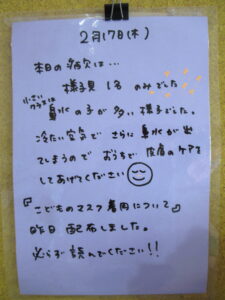 2月17日(木)
本日の病欠は…
様子見 1名 のみでした
小さいクラスは
鼻水の子が多い様子でした。
冷たい空気で さらに鼻水が出
てしまうので おうちで 皮膚のケアを
してあげてください
『こどものマスク着用について』
昨日 配布しました。
必ず読んでください!!